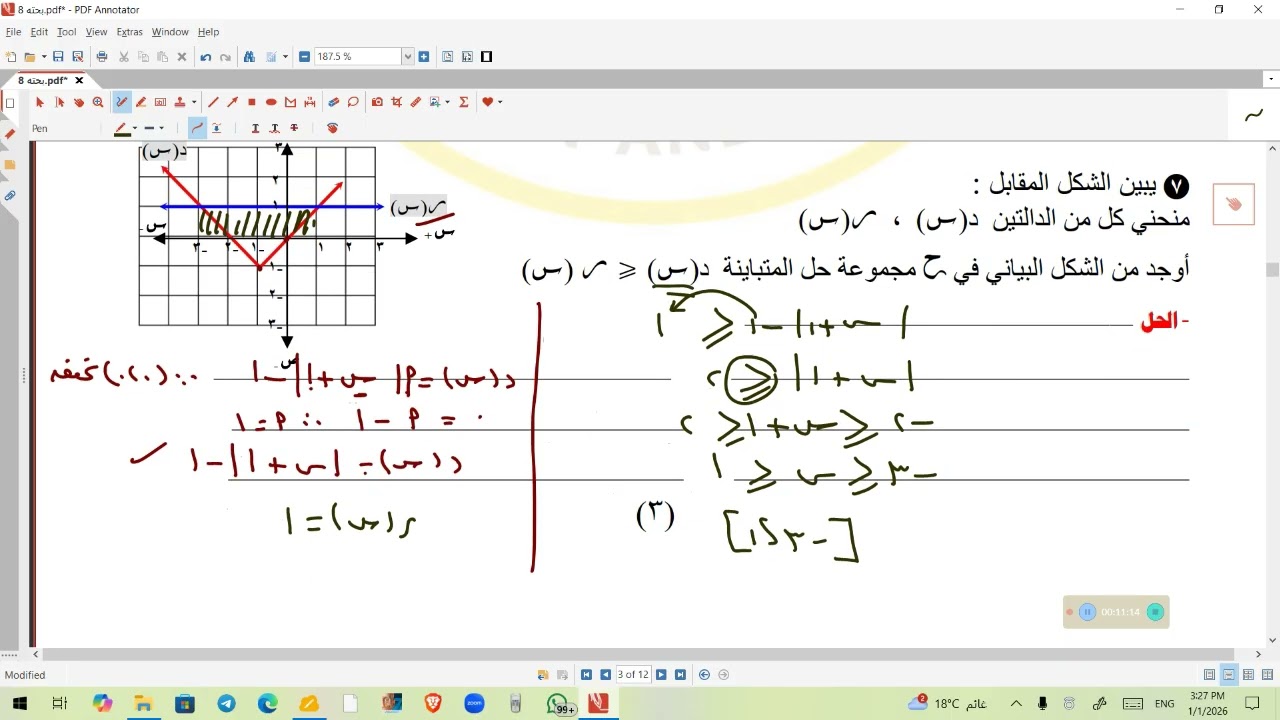 بحته 8.pdf* - PDF Annotator
File Edit Tool View Extras Window Help
187.5 %
بحته 8.pdf*
Pen
PAND
٧ يبين الشكل المقابل :
منحني كل من الدالتين د(س) ، ر(س)
أوجد من الشكل البياني في ح مجموعة حل المتباينة د(س) ⩽ ر(س)
- الحل
|س+١|-١ ≤ ١
|س+١| ≤ ٢
-٢ ≤ س+١ ≤ ٢
-٣ ≤ س ≤ ١
[-٣، ١]
(٣)
د(س)
ر(س)
س+
س-
ص-
٣
٢
١
-٣ -٢ -١ ١ ٢ ٣
-١
-٢
-٣
د(س)=م|س+١|-١ ∵ (٠،٠) تحققه
٠ = م - ١ ∴ م=١
د(س)=|س+١|-١ ✓
ر(س)=١
00:11:14
3 of 12
Modified
zoom
99+
2
18°C غائم
ENG
3:27 PM
1/1/2026